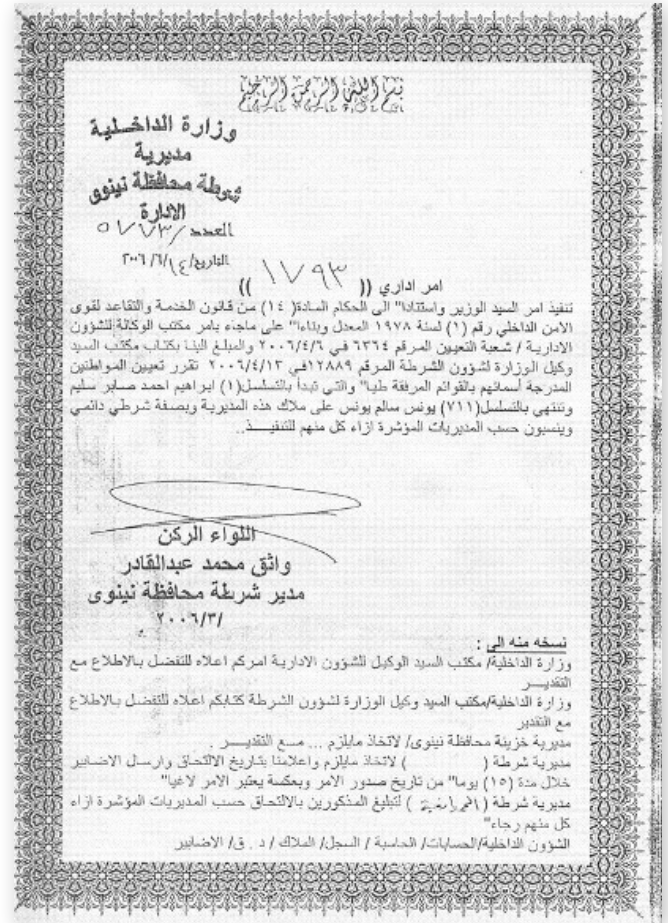 بسم الله الرحمن الرحيم
وزارة الداخلية
مديرية
شرطة محافظة نينوى
الادارة
العدد/ ٥١٧٧٣
التاريخ/١٤ /٦/ ٢٠٠٦
امر اداري (( ١٧٩٣ ))
تنفيذ امر السيد الوزير واستنادا" الى الحكام المادة( ١٤) من قانون الخدمة والتقاعد لقوى
الامن الداخلي رقم (١) لسنة ١٩٧٨ المعدل وبناءا" على ماجاء بامر مكتب الوكالة للشؤون
الادارية / شعبة التعيين المرقم ٦٣٦٤ في ٢٠٠٦/٤/٦ والمبلغ الينا بكتاب مكتب السيد
وكيل الوزارة لشؤون الشرطة المرقم ١٢٨٨٩في ٢٠٠٦/٤/١٣ تقرر تعيين المواطنين
المدرجة أسمائهم بالقوائم المرفقة طيا" والتي تبدأ بالتسلسل(١) ابراهيم احمد صابر سليم
وتنتهي بالتسلسل(٧١١) يونس سالم يونس على ملاك هذه المديرية وبصفة شرطي دائمي
وينسبون حسب المديريات المؤشرة ازاء كل منهم للتنفيــــذ..
اللواء الركن
واثق محمد عبدالقادر
مدير شرطة محافظة نينوى
/٢٠٠٦/٣
نسخه منه الى :
وزارة الداخلية/ مكتب السيد الوكيل للشؤون الادارية امركم اعلاه للتفضل بالاطلاع مع
التقديـــر
وزارة الداخلية/مكتب السيد وكيل الوزارة لشؤون الشرطة كتابكم اعلاه للتفضل بالاطلاع
مع التقدير
مديرية خزينة محافظة نينوى/ لاتخاذ مايلزم ... مــع التقديـــر .
مديرية شرطة ( ) لاتخاذ مايلزم واعلامنا بتاريخ الالتحاق وارسال الاضابير
خلال مدة (١٥) يوما" من تاريخ صدور الامر وبعكسة يعتبر الامر لاغيا"
مديرية شرطة ( ) لتبليغ المذكورين بالالتحاق حسب المديريات المؤشرة ازاء
كل منهم رجاء"
الشؤون الداخلية/الحسابات/ الحاسبة / السجل/ الملاك / د . ق/ الاضابير